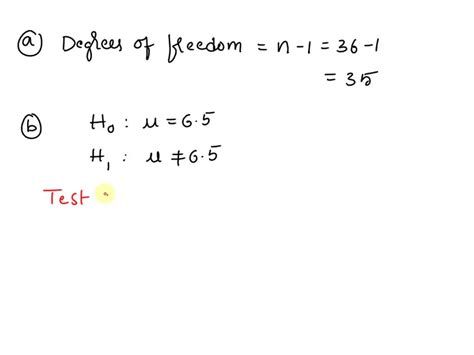 (a) Degrees of freedom = n - 1 = 36 - 1
= 35
(b) H₀ : μ = 6.5
H₁ : μ ≠ 6.5
Test